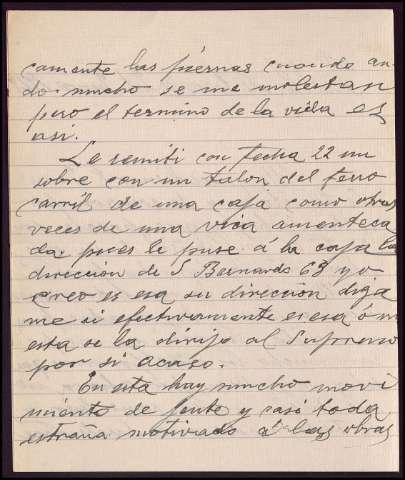 camente las piernas cuando an-
do mucho se me molestan
pero el termino de la vida es
asi.
Le remiti con fecha 22 un
sobre con un talon del ferro
carril de una caja como otras
veces de una rica amanteca
da. pues le puse á la caja la
dirección de S Bernardo 63 y o
creo es esa su dirección diga
me si efectivamente es esa o n
esta se la dirijo al Supremo
por si acaso.
En esta hay mucho movi
miento de jente y casi toda
estraña motivado á las obras